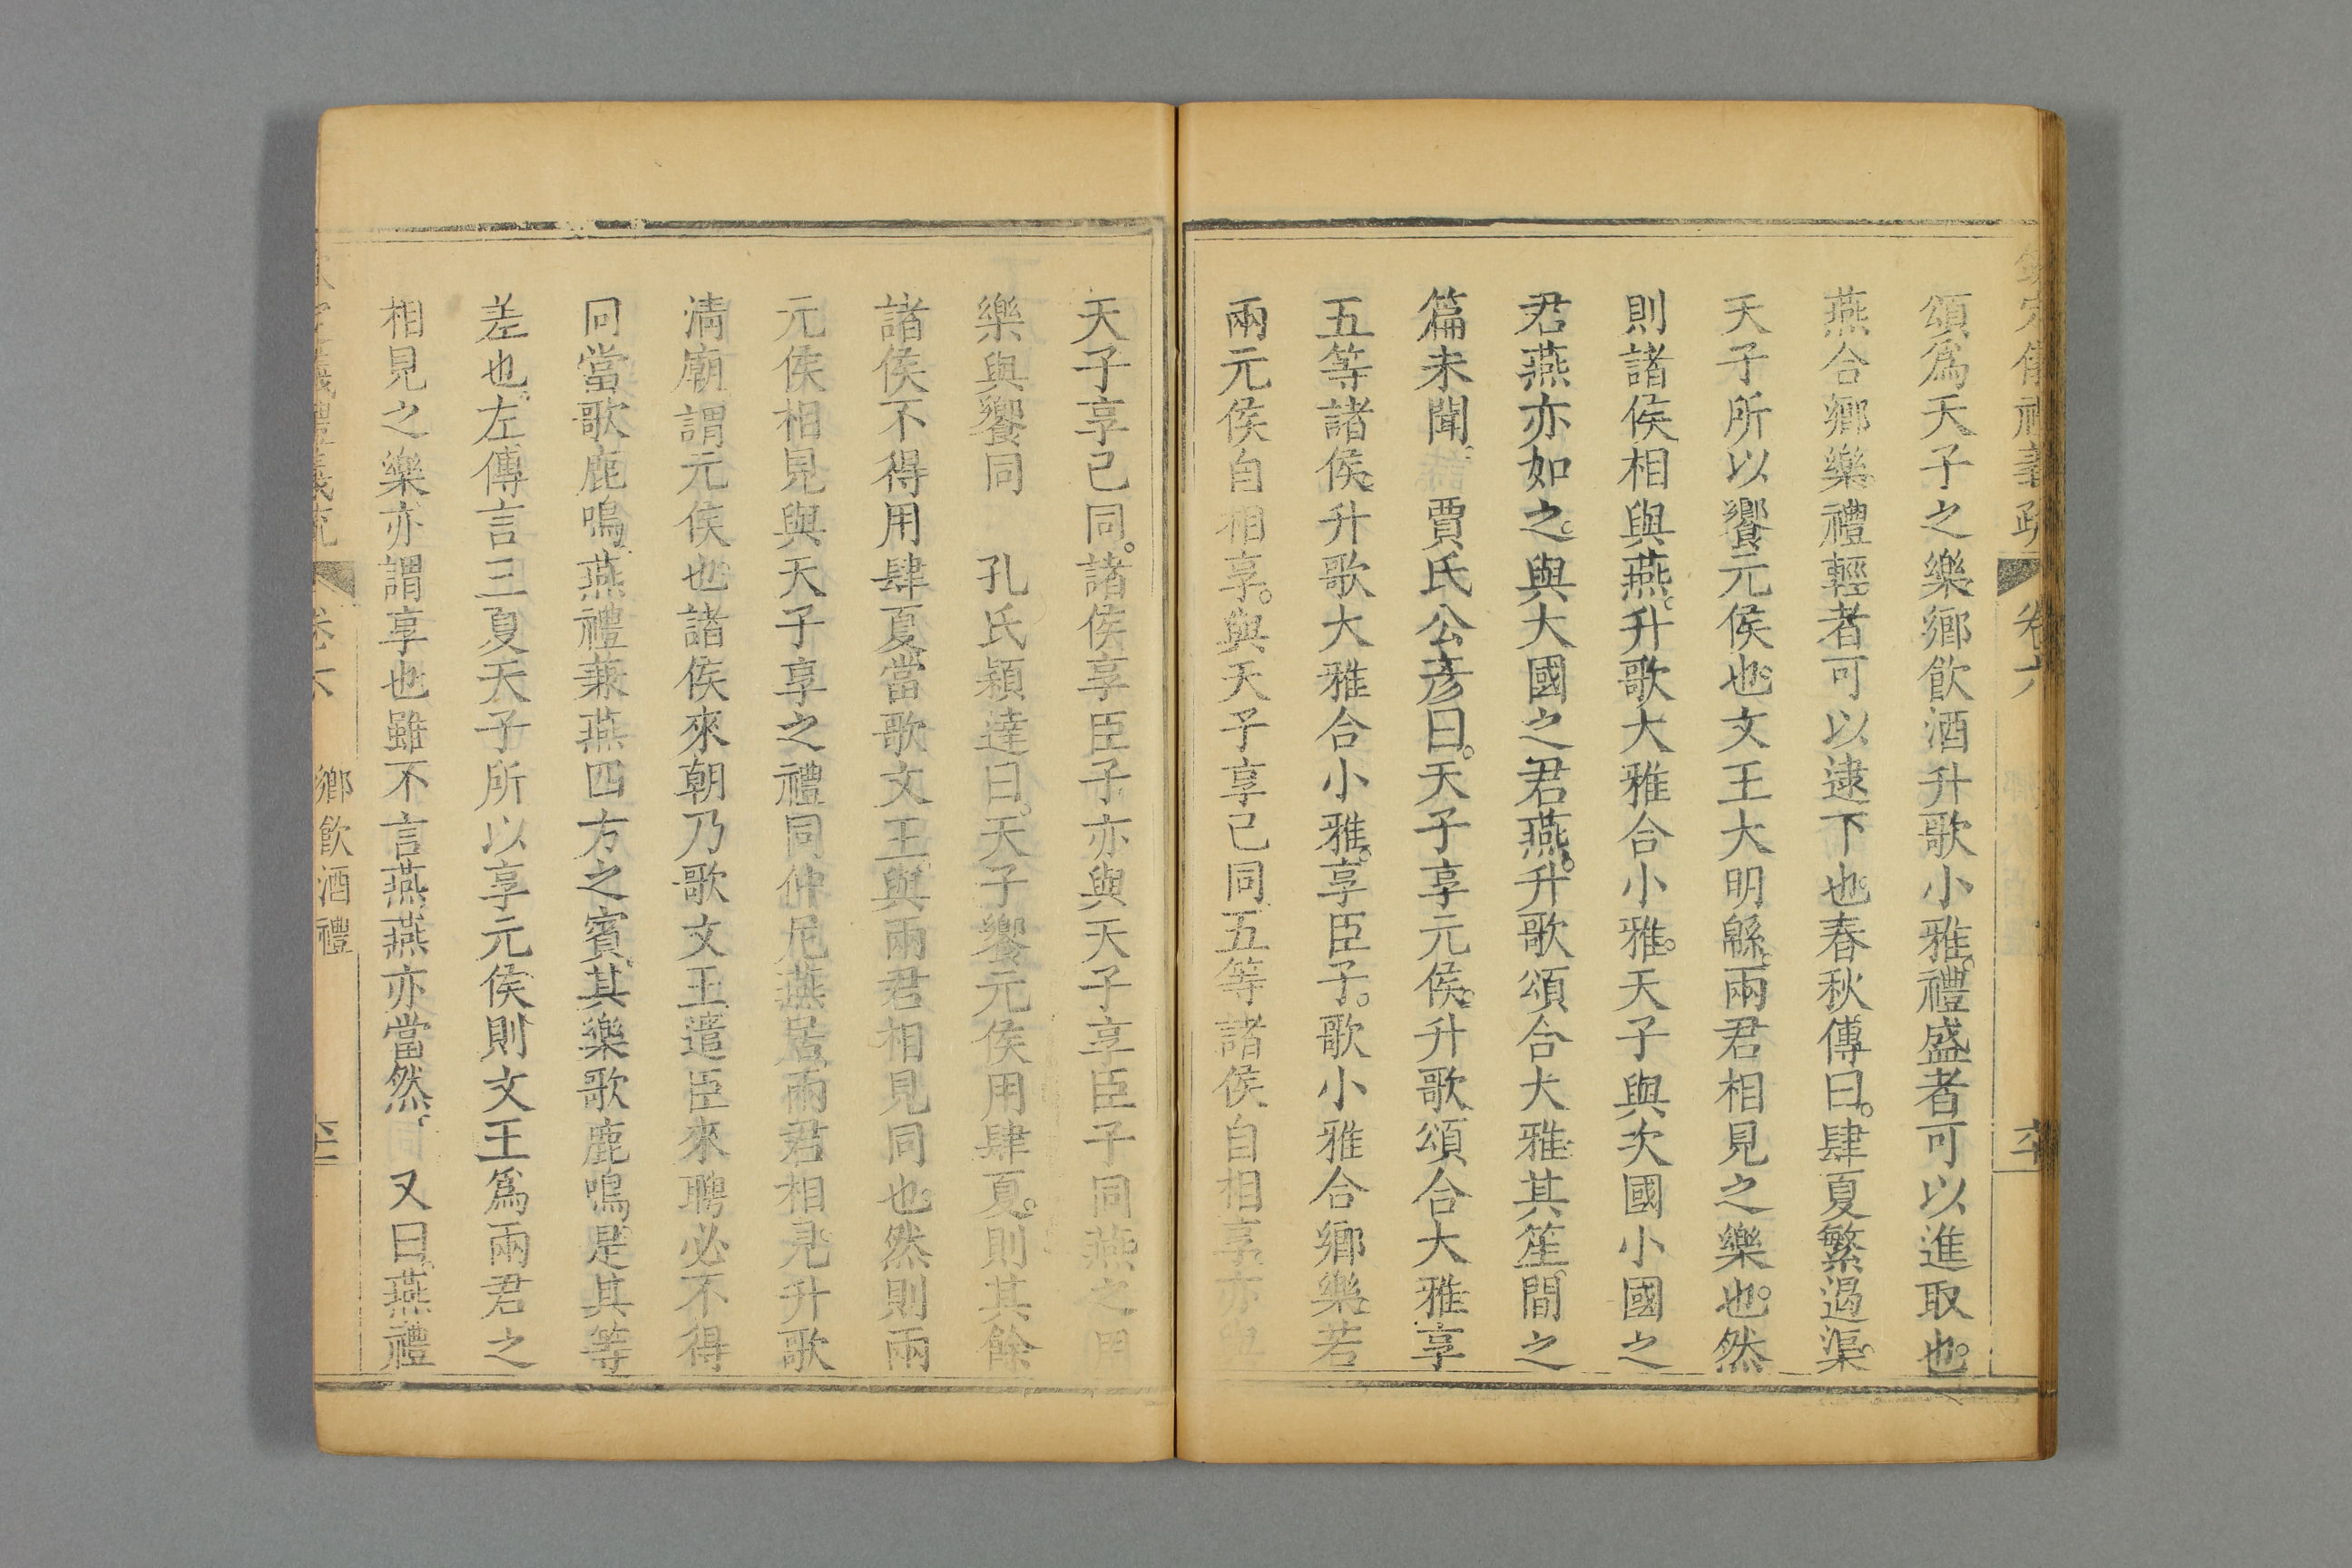 欽定儀禮義疏 卷六 六十
頌爲天子之樂鄉飲酒升歌小雅。禮盛者可以進取也。
燕合鄉樂禮輕者可以逮下也。春秋傳曰。肆夏繁遏渠。
天子所以饗元侯也。文王大明緜。兩君相見之樂也。然
則諸侯相與燕。升歌大雅合小雅。天子與次國小國之
君燕亦如之。與大國之君燕。升歌頌合大雅。其笙間之
篇未聞。 賈氏公彥曰。天子享元侯。升歌頌合大雅享
五等諸侯。升歌大雅合小雅。享臣子。歌小雅合鄉樂若
兩元侯自相享。與天子享己同五等諸侯自相享亦與
天子享己同。諸侯享臣子亦與天子享臣子同燕之用
樂與饗同 孔氏穎達曰。天子饗元侯用肆夏。則其餘
諸侯不得用肆夏當歌文王。與兩君相見同也。然則兩
元侯相見與天子享之禮同仲尼燕居兩君相見升歌
清廟謂元侯也。諸侯來朝乃歌文王遣臣來聘必不得
同當歌鹿鳴。燕禮兼燕四方之賓。其樂歌鹿鳴。是其等
差也。左傳言三夏天子所以享元侯則文王爲兩君之
相見之樂亦謂享也雖不言燕燕亦當然。 又曰。燕禮
欽定儀禮義疏 卷六 鄉飲酒禮